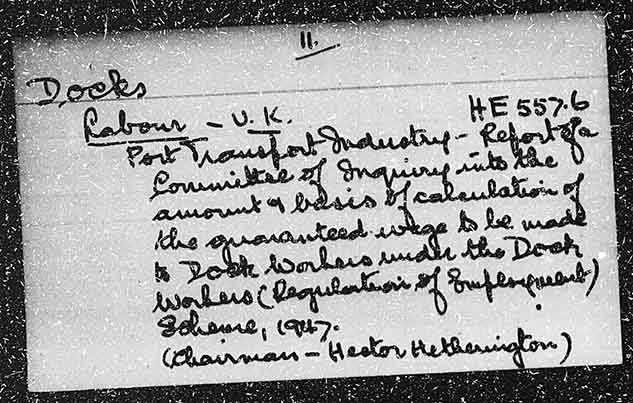 11.
Docks
Labour - U.K.
HE 557.6
Port Transport Industry - Report of a
Committee of Inquiry into the
amount & basis of calculation of
the guaranteed wage to be made
to Dock Workers under the Dock
Workers (Regulation of Employment)
Scheme, 1947.
(Chairman - Hector Hetherington)